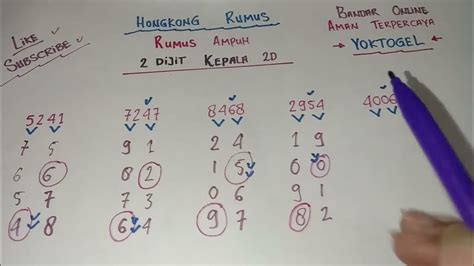 Like
Subscribe
Hongkong Rumus
Rumus Ampuh
2 Dijit Kepala 2D
Bandar Online
Aman Terpercaya
→ Yoktogel ←
5241 7247 8468 2954 4006
7 5 9 1 2 4 1 9
6 6 8 2 1 5 0 6
5 7 7 3 0 6 9 1
4 8 6 4 9 7 8 2